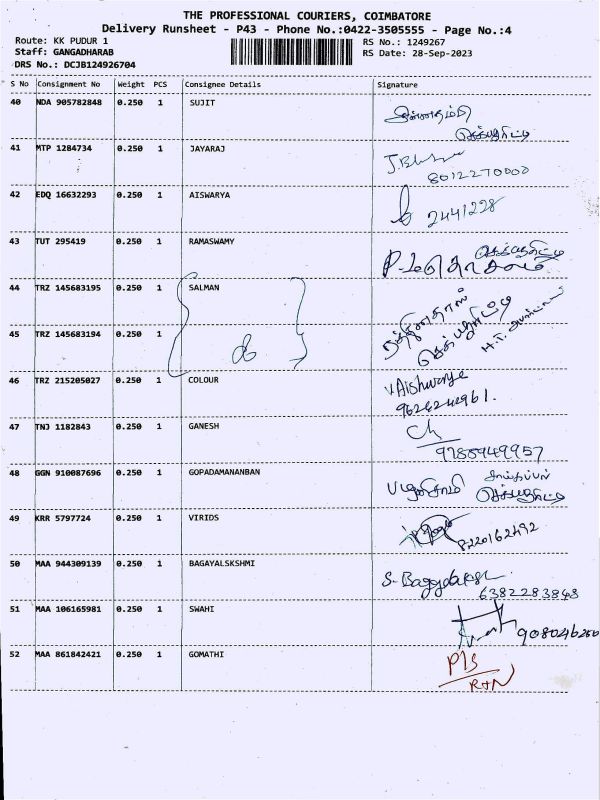 THE PROFESSIONAL COURIERS, COIMBATORE
Delivery Runsheet - P43 - Phone No.:0422-3505555 - Page No.:4
Route: KK PUDUR 1
RS No.: 1249267
Staff: GANGADHARAB
RS Date: 28-Sep-2023
DRS No.: DCJB124926704
S No Consignment No Weight PCS Consignee Details Signature
40 NDA 905782848 0.250 1 SUJIT
41 MTP 1284734 0.250 1 JAYARAJ
8012270000
42 EDQ 16632293 0.250 1 AISWARYA
2441228
43 TUT 295419 0.250 1 RAMASWAMY
44 TRZ 145683195 0.250 1 SALMAN
45 TRZ 145683194 0.250 1
46 TRZ 215205027 0.250 1 COLOUR
47 TNJ 1182843 0.250 1 GANESH
9785949957
48 GGN 910087696 0.250 1 GOPADAMANANBAN
49 KRR 5797724 0.250 1 VIRIDS
8220162492
50 MAA 944309139 0.250 1 BAGAYALSKSHMI
6382283848
51 MAA 106165981 0.250 1 SWAHI
52 MAA 861842421 0.250 1 GOMATHI
P/S
RTN